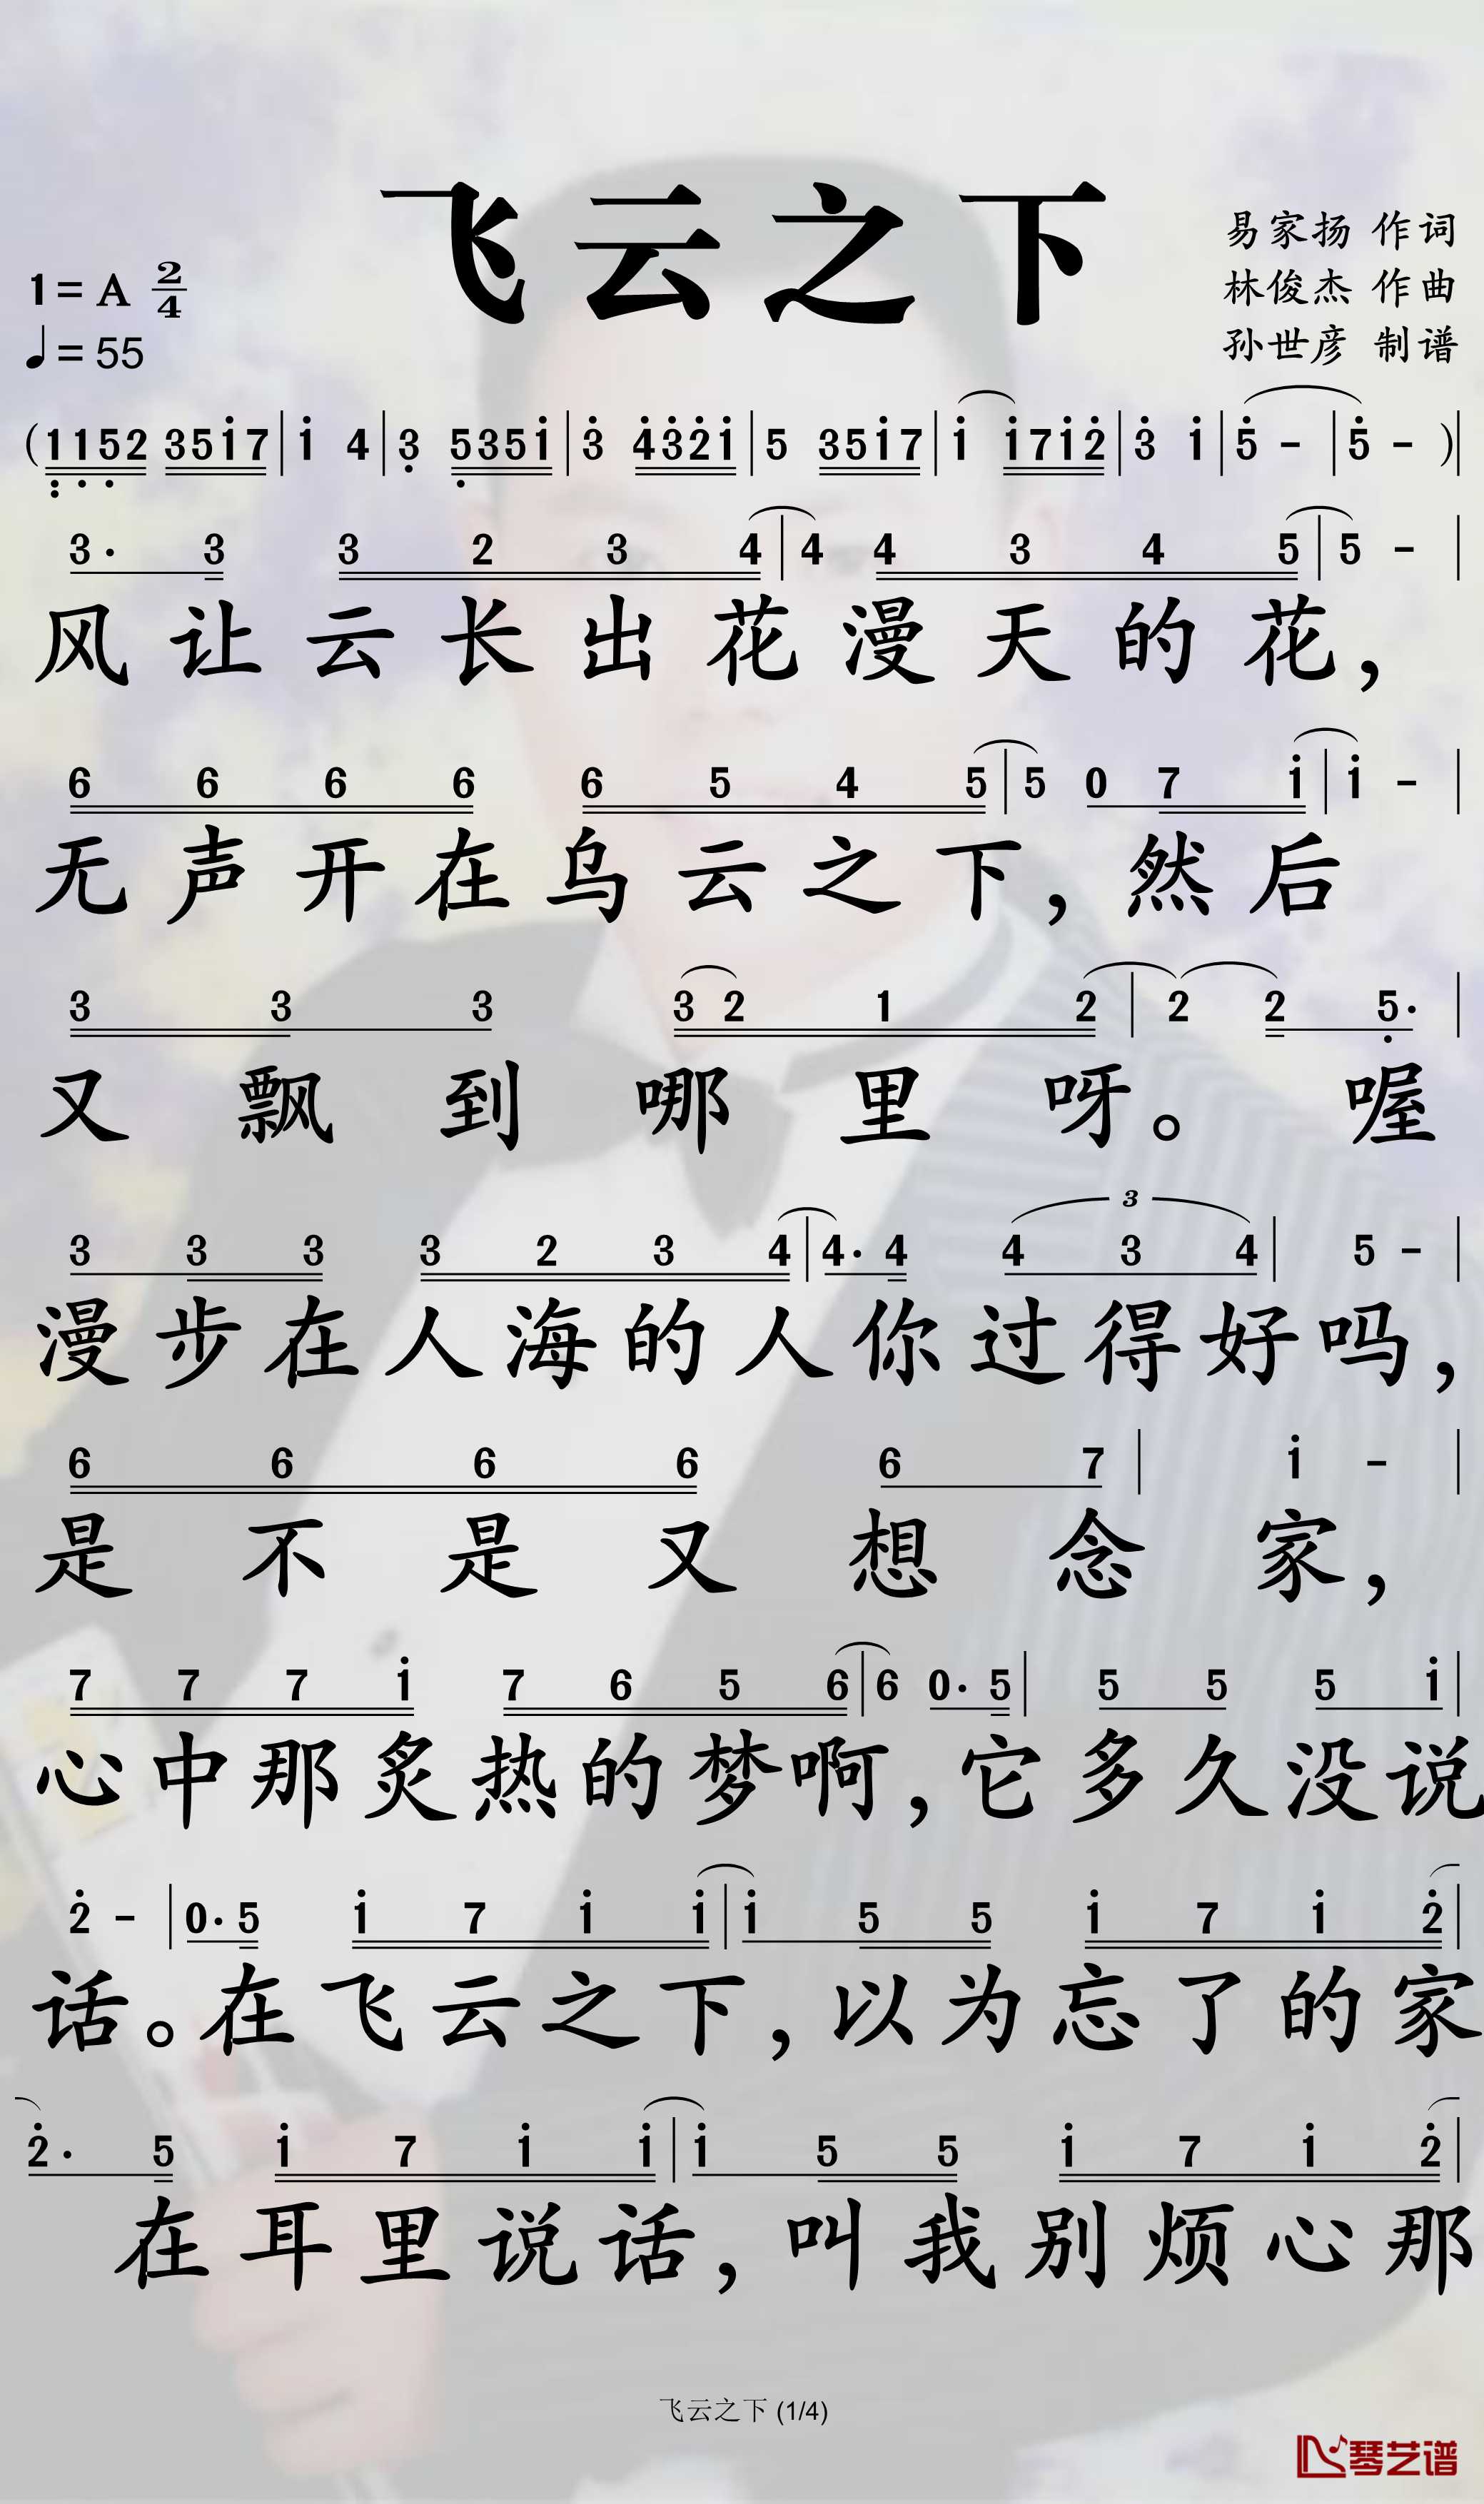 飞云之下
1=A 2/4
♩=55
易家扬 作词
林俊杰 作曲
孙世彦 制谱
(1152 351̇7 | 1̇ 4 | 3 5351̇ | 3̇ 4̇3̇2̇1̇ | 5 351̇7 | 1̇ 1̇71̇2̇ | 3̇ 1̇ | 5̇ - | 5̇ - ) |
3· 3 3 2 3 4 | 4 4 3 4 5 | 5 - |
风让云长出花漫天的花，
6 6 6 6 6 5 4 5 | 5 0 7 1̇ | 1̇ - |
无声开在乌云之下，然后
3 3 3 3 2 1 2 | 2 2 5̣· |
又飘到哪里呀。喔
3 3 3 3 2 3 4 | 4· 4 4 3 4 | 5 - |
3
漫步在人海的人你过得好吗，
6 6 6 6 6 7 | 1̇ - |
是不是又想念家，
7 7 7 1̇ 7 6 5 6 | 6 0· 5 | 5 5 5 1̇ |
心中那炙热的梦啊，它多久没说
2̇ - | 0· 5 1̇ 7 1̇ 1̇ | 1̇ 5 5 1̇ 7 1̇ 2̇ |
话。在飞云之下，以为忘了的家
2̇· 5 1̇ 7 1̇ 1̇ | 1̇ 5 5 1̇ 7 1̇ 2̇ |
在耳里说话，叫我别烦心那
飞云之下 (1/4)
琴艺谱